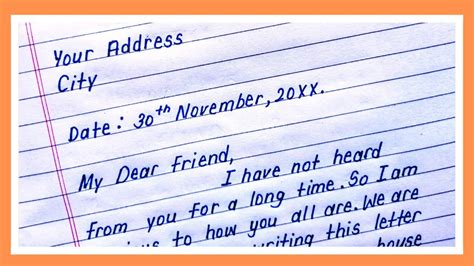 Your Address
City
Date : 30th November, 20XX.
My Dear Friend,
I have not heard
from you for a long time. So I am
to how you all are. We are
writing this letter
house